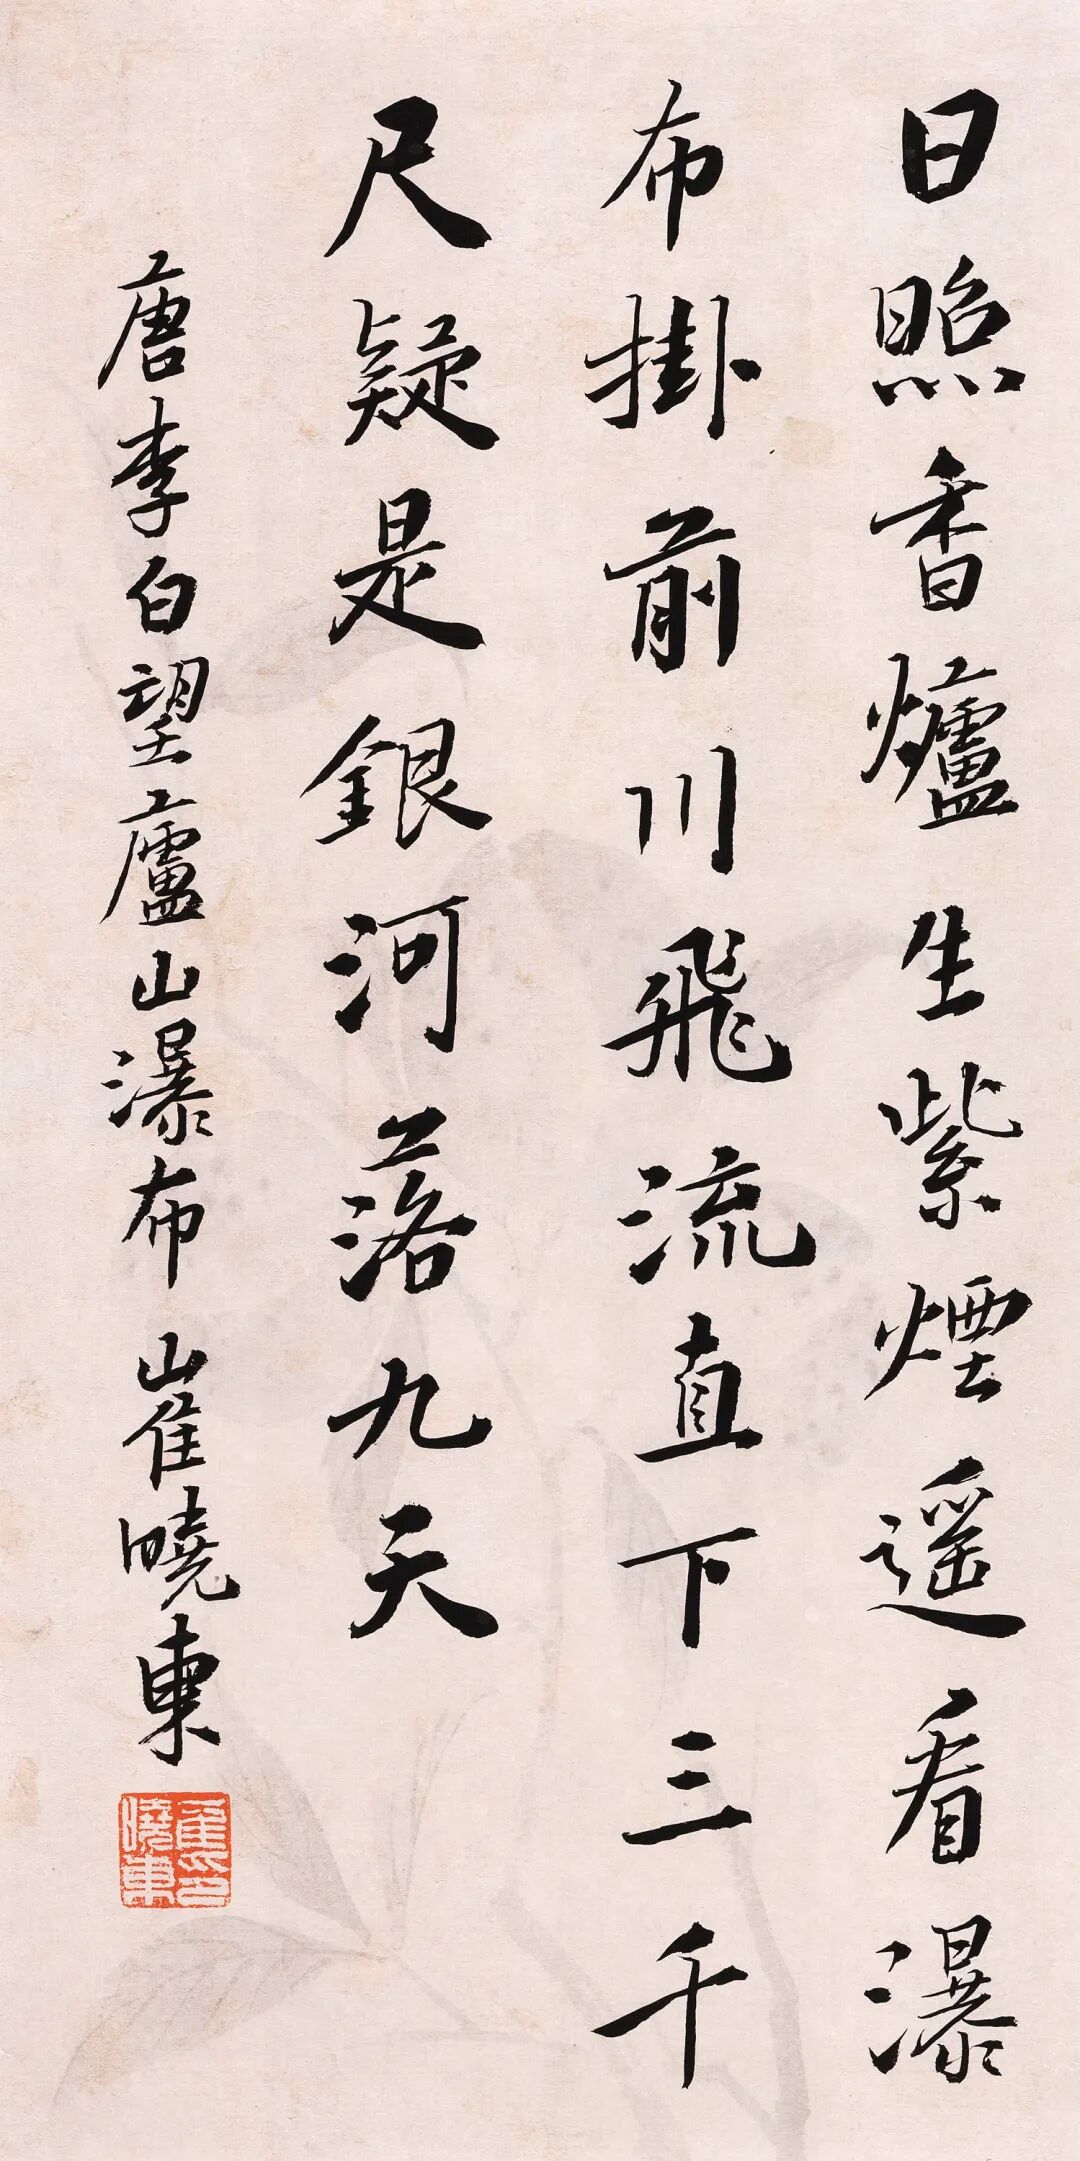 日照香爐生紫煙遥看瀑
布掛前川飛流直下三千
尺疑是銀河落九天
唐李白望廬山瀑布 崔曉東
崔印曉東